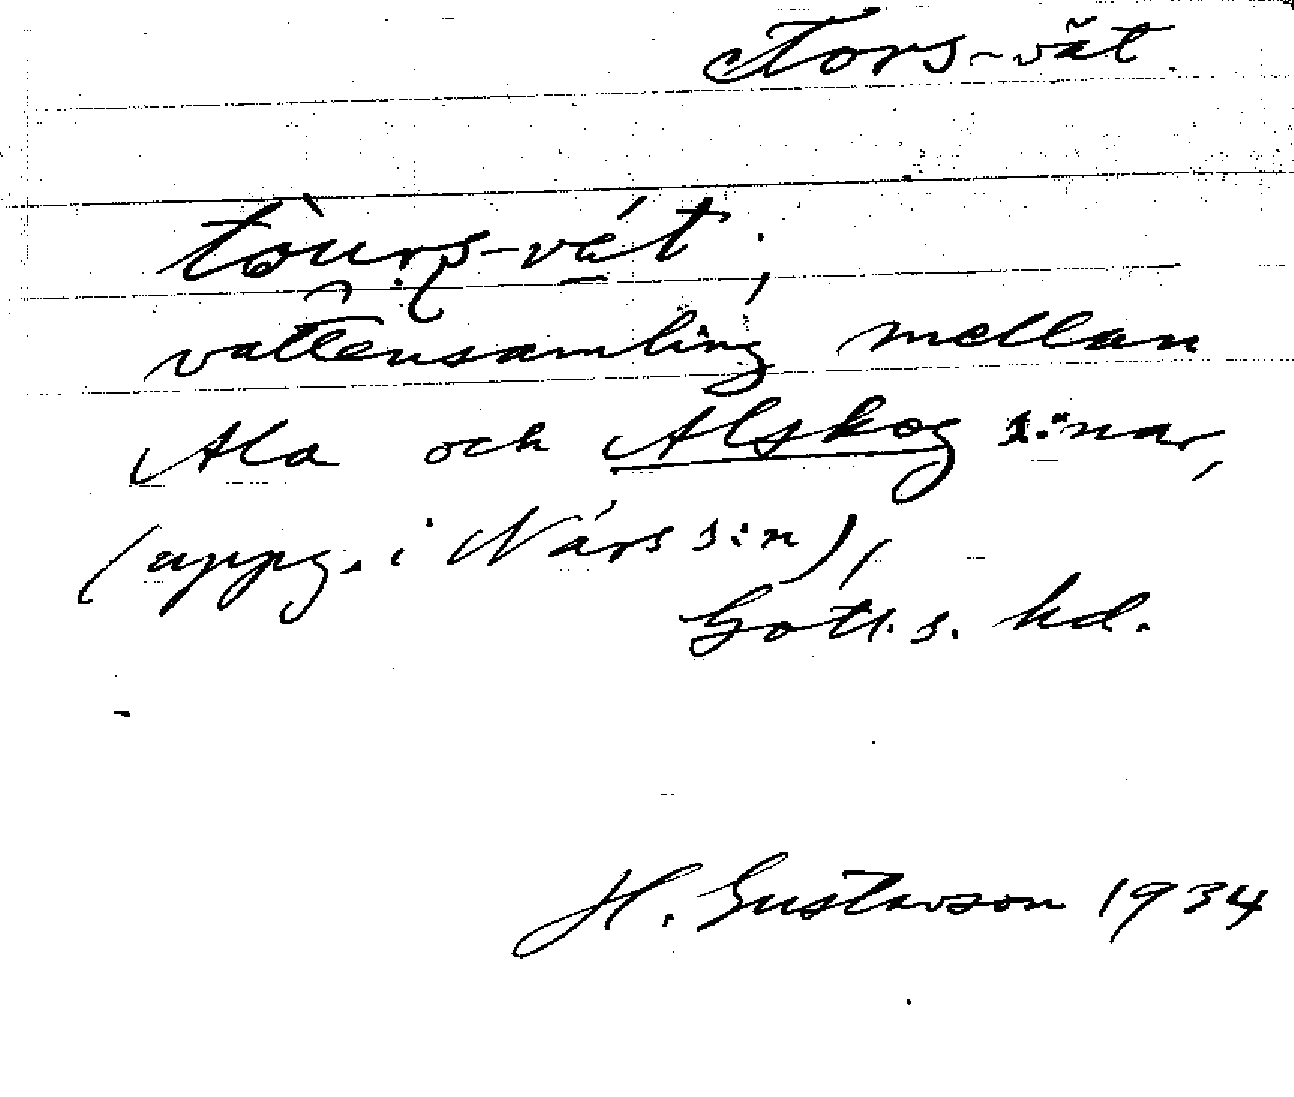 Tors-vät.
tòurs-vét;
vattensamling mellan
Ala och Alskog s:nar,
(uppg. i Närs s:n),
Gotl. s. hd.
H. Gustavson 1934